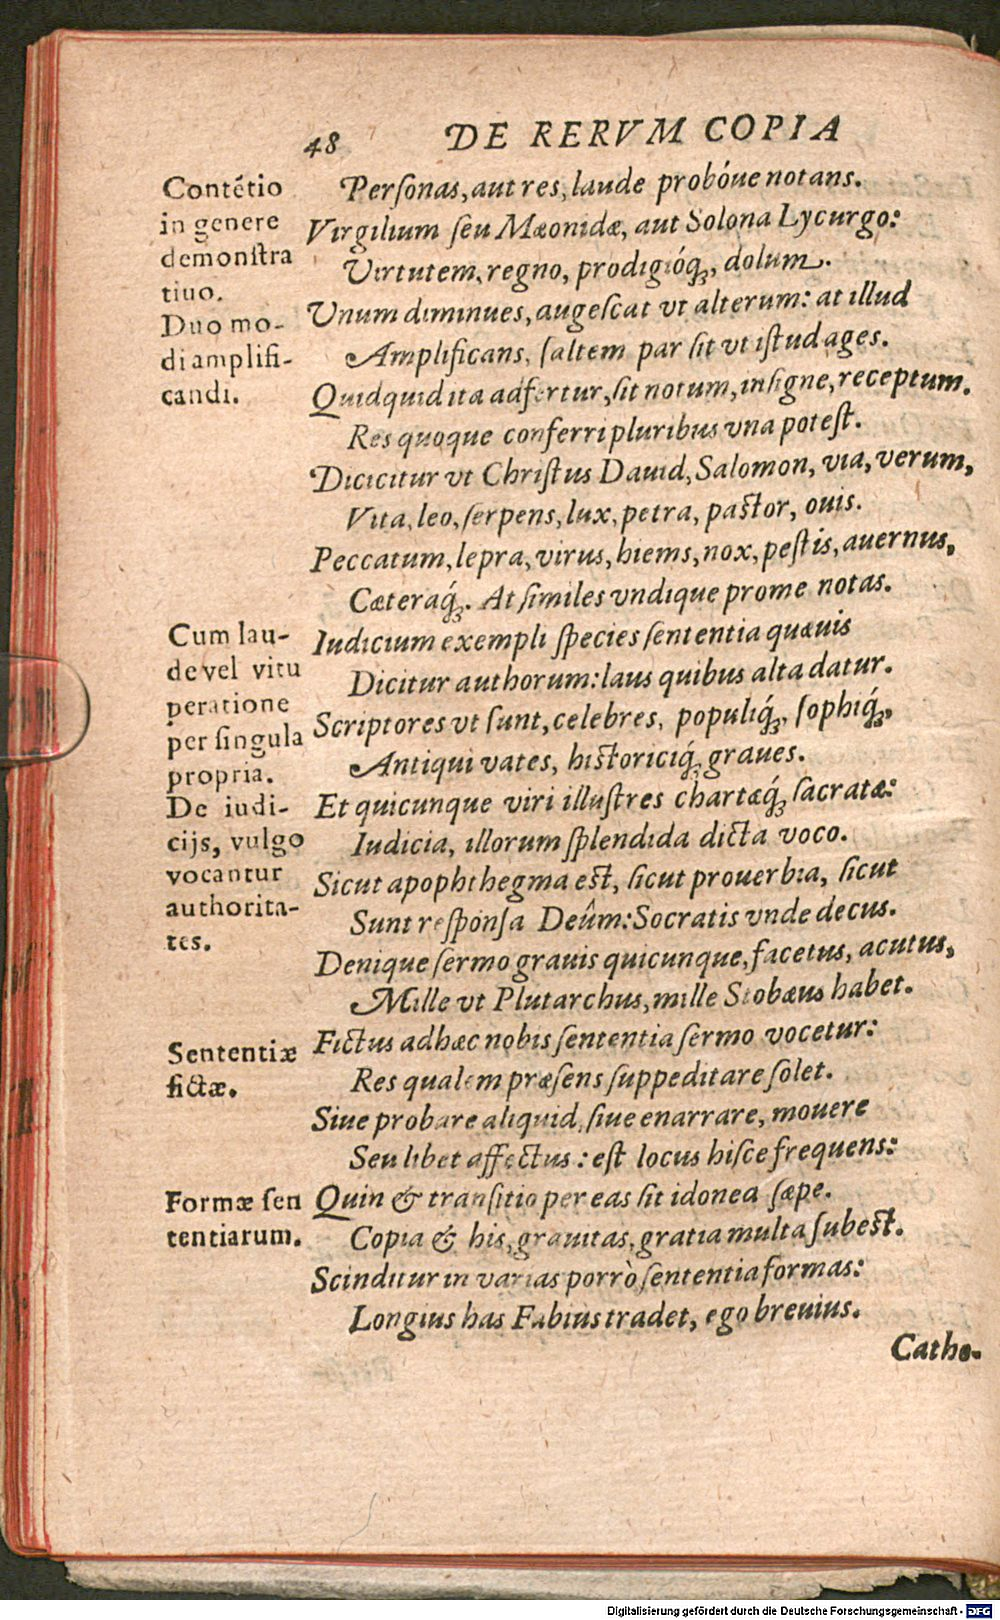 48 DE RERVM COPIA
Contẽtio
in genere
demonstra
tiuo.
Duo mo-
di amplifi-
candi.
Personas, aut res, laude probóue notans.
Virgilium seu Mæonidæ, aut Solona Lycurgo:
Virtutem, regno, prodigióq́ꝫ, dolum.
Unum diminues, augescat vt alterum: at illud
Amplificans, saltem par sit vt istud ages.
Quidquid ita adfertur, sit notum, insigne, receptum.
Res quoque conferri pluribus vna potest.
Dicicitur vt Christus Dauid, Salomon, via, verum,
Vita, leo, serpens, lux, petra, pastor, ouis.
Peccatum, lepra, virus, hiems, nox, pestis, auernus,
Cæteraq́ꝫ. At similes vndique prome notas.
Cum lau-
de vel vitu
peratione
per singula
propria.
De iudi-
cijs, vulgo
vocantur
authorita-
tes.
Iudicium exempli species sententia quæuis
Dicitur authorum: laus quibus alta datur.
Scriptores vt sunt, celebres, populiq́ꝫ, sophiq́ꝫ,
Antiqui vates, historiciq́ꝫ graues.
Et quicunque viri illustres chartæq́ꝫ sacratæ:
Iudicia, illorum splendida dicta voco.
Sicut apophthegma est, sicut prouerbia, sicut
Sunt responsa Deûm: Socratis vnde decus.
Denique sermo grauis quicunque, facetus, acutus,
Mille vt Plutarchus, mille Stobæus habet.
Sententiæ
fictæ.
Fictus adhæc nobis sententia sermo vocetur:
Res qualem præsens suppeditare solet.
Siue probare aliquid, siue enarrare, mouere
Seu libet affectus: est locus hisce frequens:
Formæ sen
tentiarum.
Quin & transitio per eas sit idonea sæpe.
Copia & his, grauitas, gratia multa subest.
Scinditur in varias porrò sententia formas:
Longius has Fabius tradet, ego breuius.
Catho-
Digitalisierung gefördert durch die Deutsche Forschungsgemeinschaft - DFG